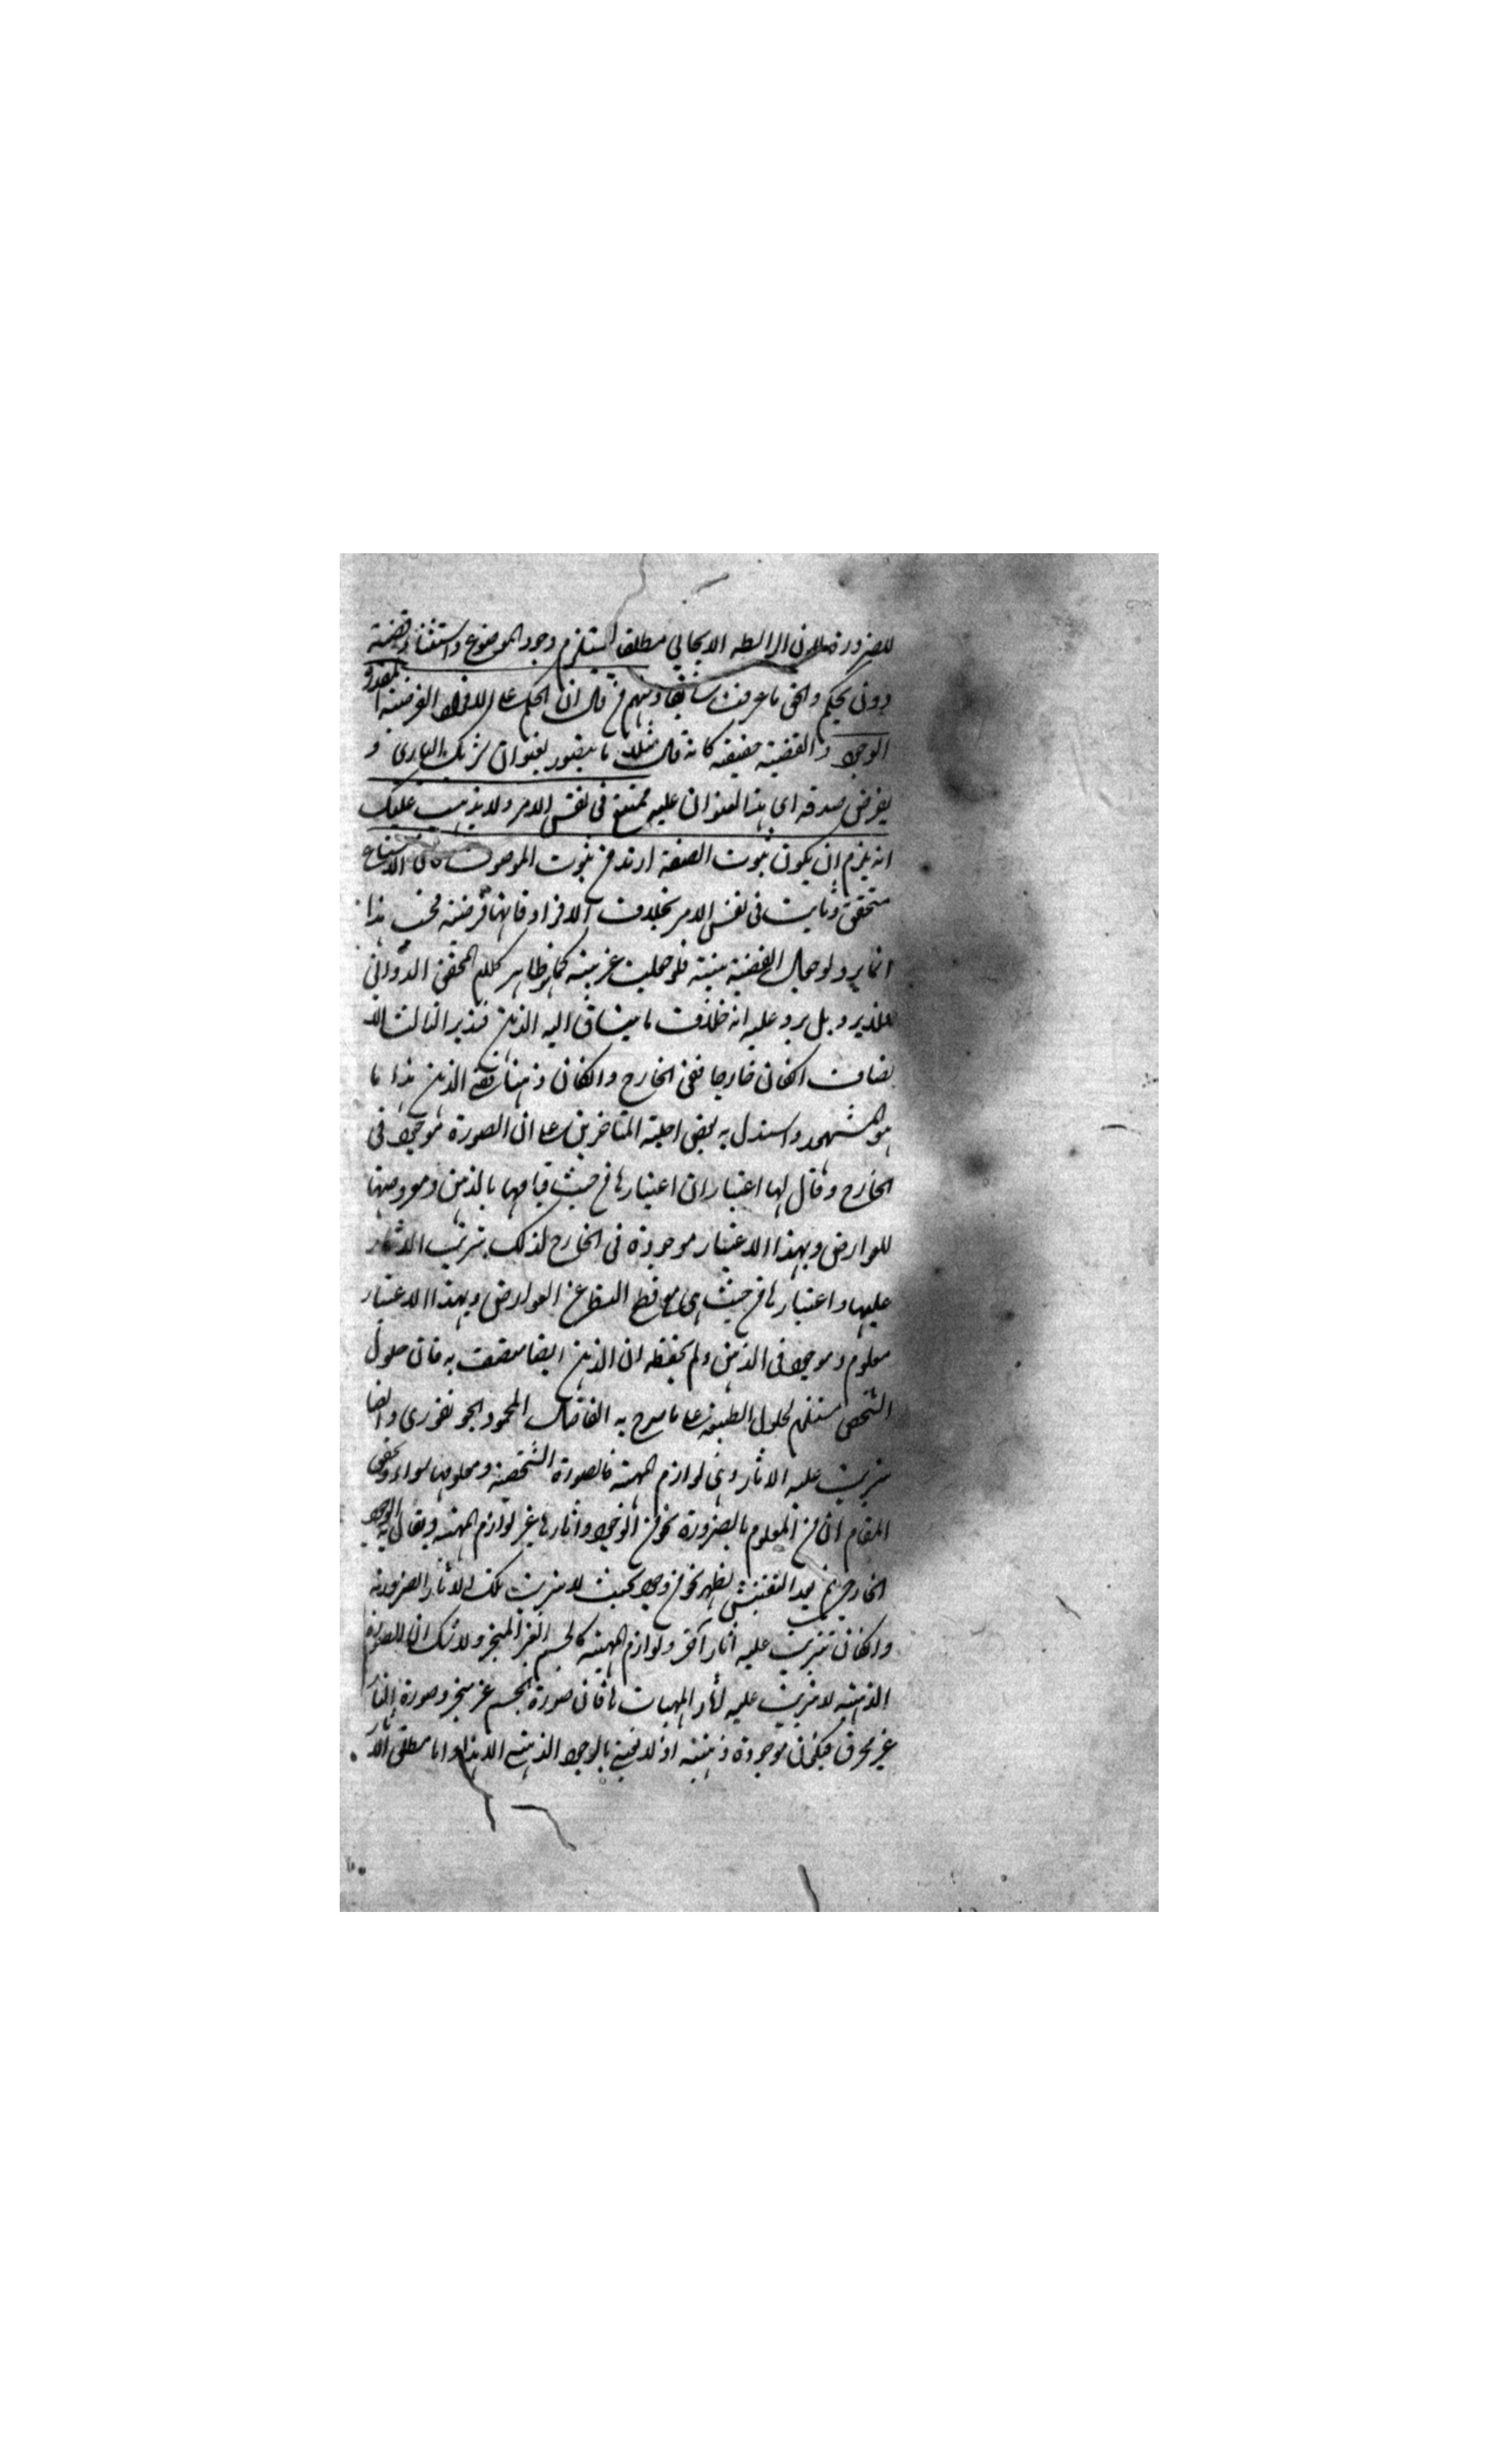 للضرورة لان الرابطه الايجابي مطلقا يستلزم وجود الموضوع واستثناء قضية
دون تحكم والحق ما عرفت سابقا ومنهم من قال ان الحكم على الافراد الفرضية المقدرة
الوجود والقضية حقيقة كانه قال مثلا ما يتصور بعنوان شريك الباري و
يفرض صدقه اي هذا العنوان عليه ممتنع في نفس الامر ولا يذهب عليك
انه يلزم ان يكون ثبوت الصفة ازيد من ثبوت الموصوف فان الامتناع
متحقق وثابت في نفس الامر بخلاف الافراد فانها فرضية محضة هذا
انما يرد لو جعل القضية بتية فلو جعلت غير بتية كما هو ظاهر كلام المحقق الدواني
فلا يرد بل يرد عليه انه خلاف ما ينساق اليه الذهن فتدبر الثالث الا
تصاف ان كان خارجا ففي الخارج وان كان ذهنا ففي الذهن هذا ما
هو المشهور واستدل به بعض اجلة المتاخرين على ان الصورة موجود في
الخارج وقال لها اعتباران اعتبارها من حيث قيامها بالذهن ومعروضها
للعوارض وبهذا الاعتبار موجودة في الخارج لذلك يترتب الاثار
عليها واعتبارها من حيث هي مع قطع النظر عن العوارض وبهذا الاعتبار
معلوم وموجود في الذهن ولم يحفظه ان الذهن ايضا متصف به فان حلول
الشخص مستلزم لحلول الطبيعة على ما صرح به الفاضل المحمود الجونفوري وايضا
يترتب عليه الاثار وهي لوازم المهية فالصورة الشخصية ومعلومها سواء وتحقيق
المقام ان من المعلوم بالضرورة نحو من الوجود واثارها غير لوازم المهية ويقال له الوجود
الخارجي ثم بعد التفتيش يظهر نحو من وجود بحيث لا يترتب تلك الاثار الضرورية
وان كان تترتب عليه اثار آخر ولوازم المهية كالجسم الغير المتحيز ولا شك ان الصورة
الذهنية لا يترتب عليه اثار المهيات فان صورة الجسم غير متحيز وصورة النار
غير محرق فيكون موجودة ذهنية اذ لا نعني بالوجود الذهني الا هذا واما مطلق الاثار